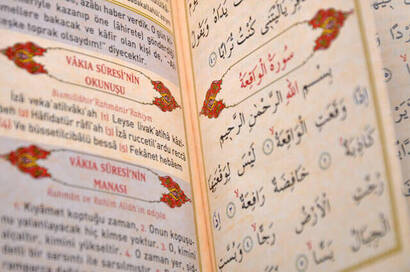 azâbı haber verdik. O gün
meller bakacak ve kâfir olan kişi de, "
eşke toprak olsaydım!" diyecektir.
VÂKIA SÛRESİ'NİN
OKUNUŞU
Bismillâhir'Rahmânir'Rahîym
İzâ veka'atilvâkı'ah (1) Leyse livak'atihâ kâzi-
beh (2) Hâfidatür râfi'ah (3) İzâ ruccetil'ardu reccâ
(4) Ve büssetilcibâlü bessâ (5) Fekânet hebâem
VÂKIA SÛRESİ'NİN
MANASI
Rahmân ve Rahîm Allah'ın adıyla
1. Kıyâmet koptuğu zaman, 2. Onun kopuşu-
nu yalanlayacak hiç kimse yoktur. 3. O, kimini
alçaltır, kimini yükseltir. 4. O zaman yer, şid-
سُورَةُ الْوَاقِعَةِ
بِسْمِ اللهِ الرَّحْمٰنِ الرَّحِيمِ
إِذَا وَقَعَتِ الْوَاقِعَةُ لَيْسَ لِوَقْعَتِهَا
كَاذِبَةٌ خَافِضَةٌ رَافِعَةٌ إِذَا
رُجَّتِ الْأَرْضُ رَجًّا وَبُسَّتِ